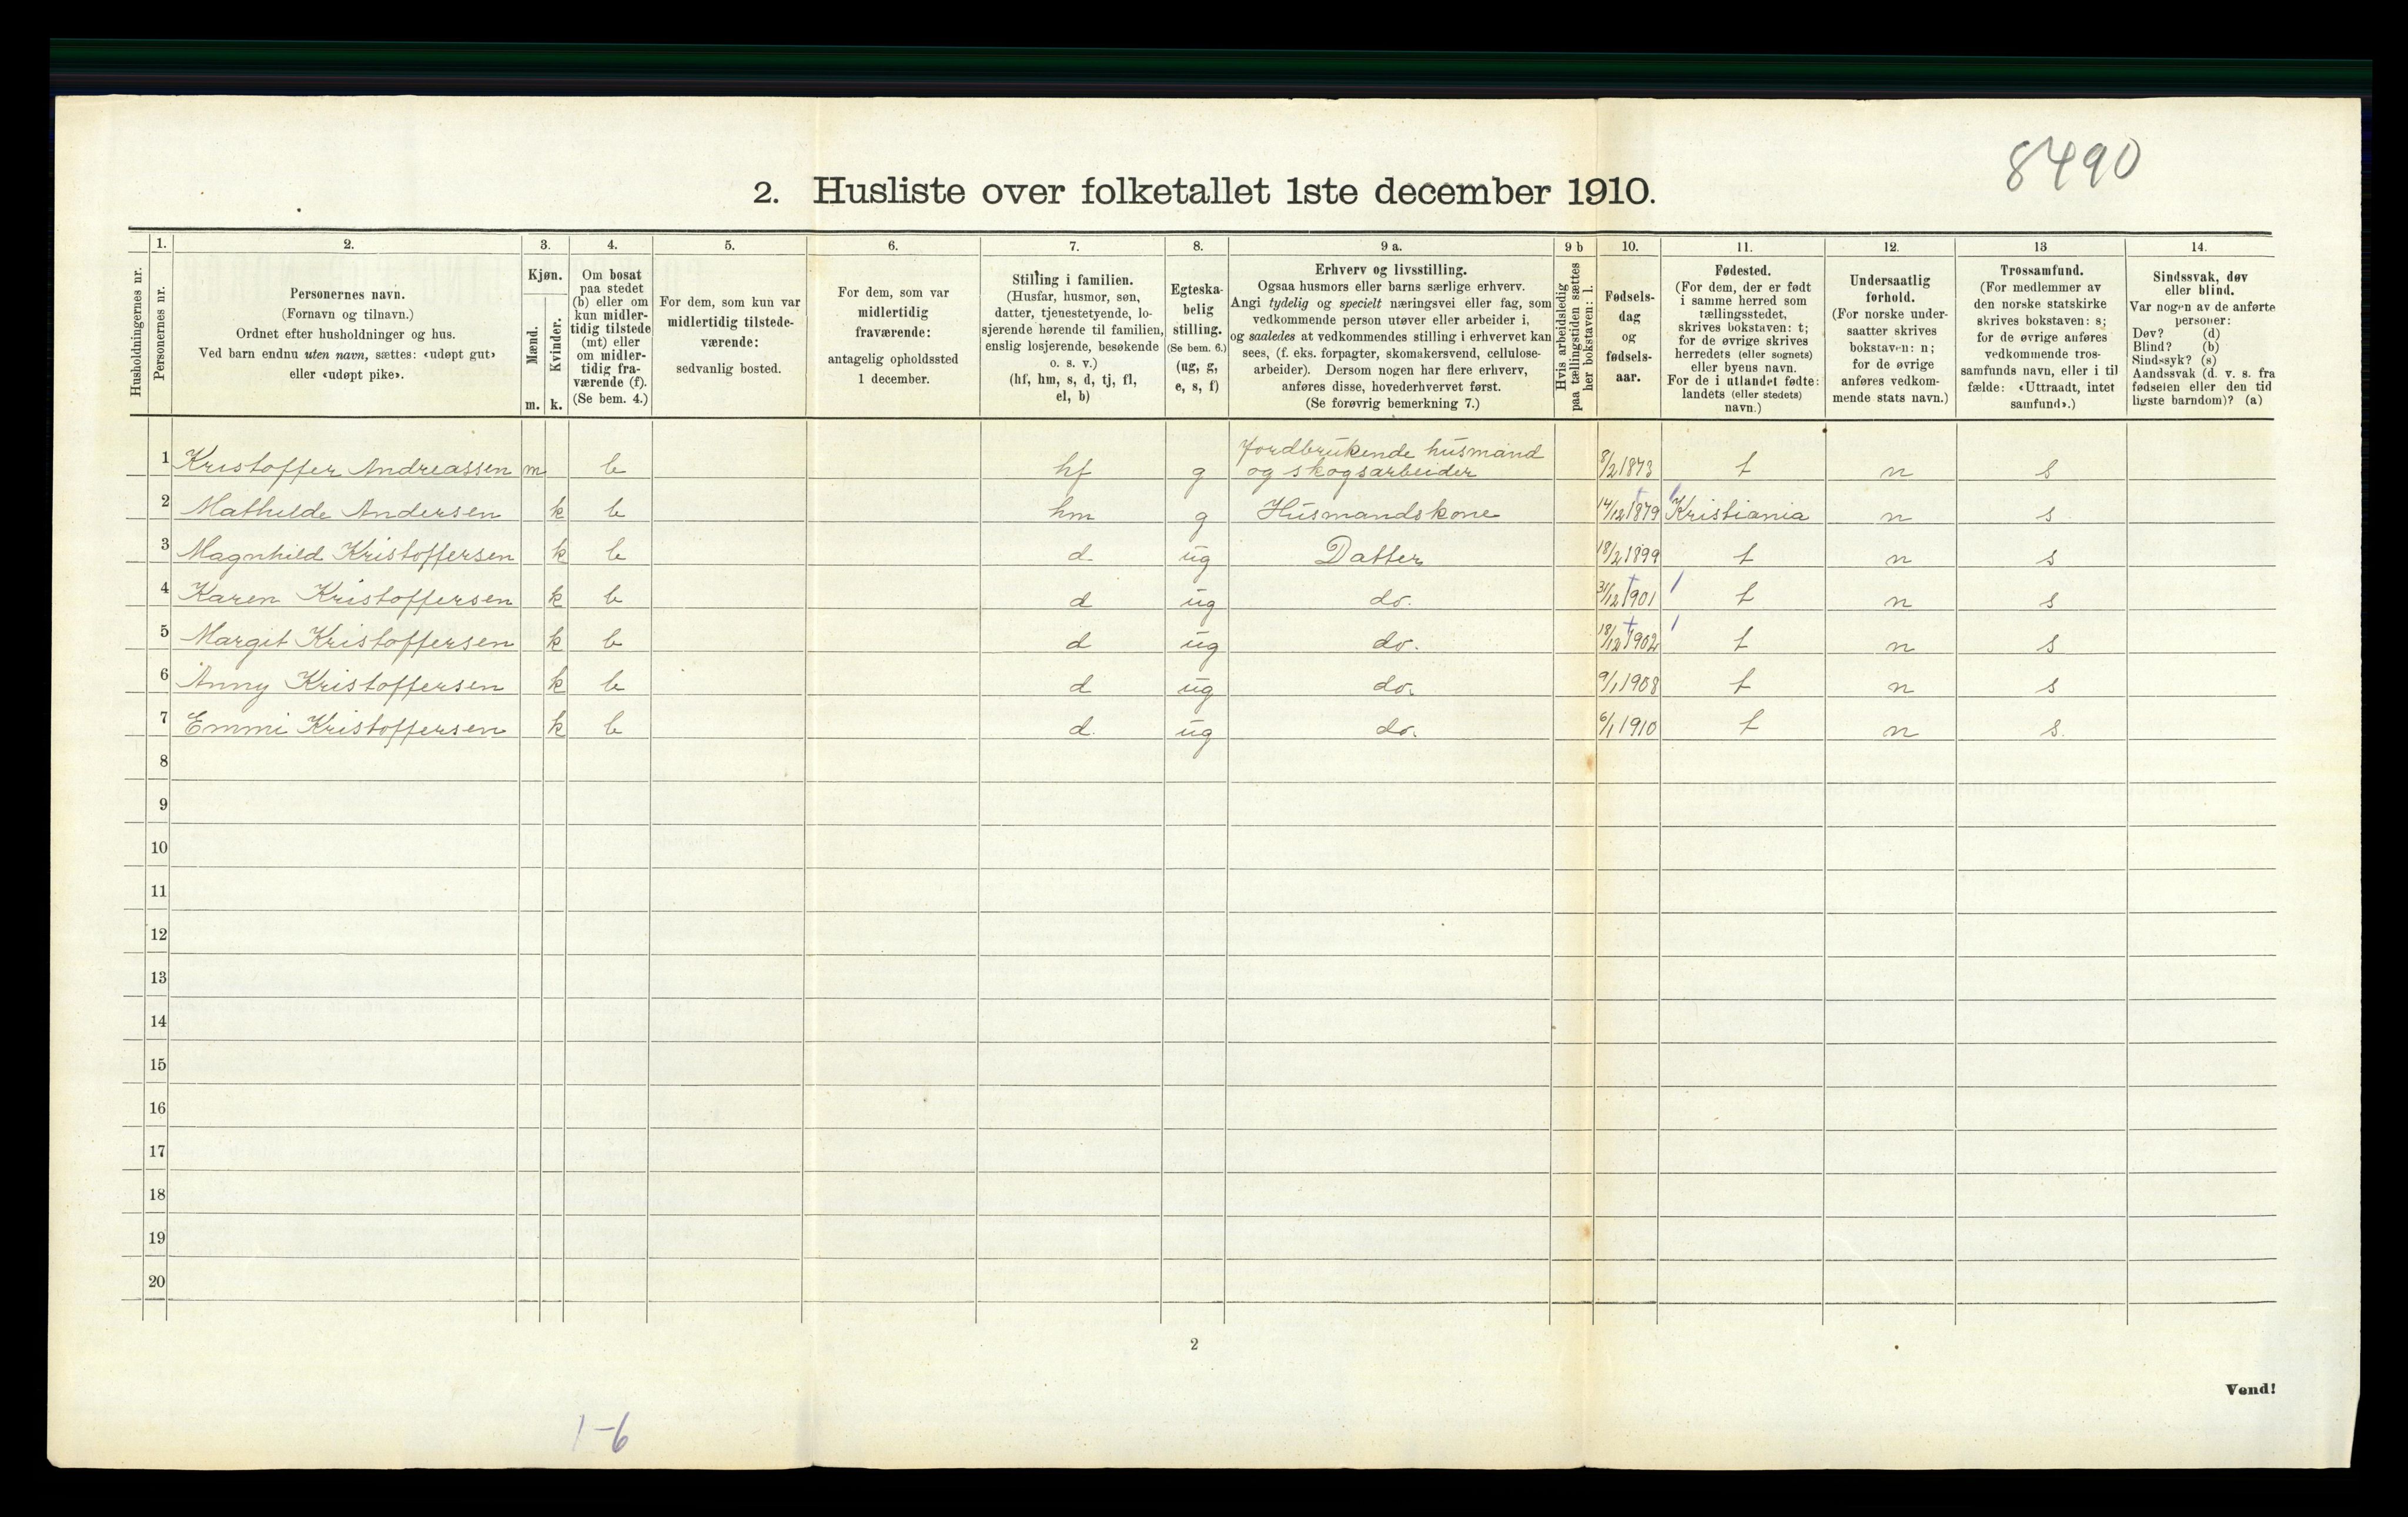 8490
2. Husliste over folketallet 1ste december 1910.
Husholdningernes nr.
1.
Personernes nr.
2.
Personernes navn.
(Fornavn og tilnavn.)
Ordnet efter husholdninger og hus.
Ved barn endnu uten navn, sættes: «udøpt gut»
eller «udøpt pike».
3.
Kjøn.
Mænd.
Kvinder.
m. k.
4.
Om bosat
paa stedet
(b) eller om
kun midler-
tidig tilstede
(mt) eller
om midler-
tidig fra-
værende (f).
(Se bem. 4.)
5.
For dem, som kun var
midlertidig tilstede-
værende:
sedvanlig bosted.
6.
For dem, som var
midlertidig
fraværende:
antagelig opholdssted
1 december.
7.
Stilling i familien.
(Husfar, husmor, søn,
datter, tjenestetyende, lo-
sjerende hørende til familien,
enslig losjerende, besøkende
o. s. v.)
(hf, hm, s, d, tj, fl,
el, b)
8.
Egteska-
belig
stilling.
(Se bem. 6.)
(ug, g,
e, s, f)
9 a.
Erhverv og livsstilling.
Ogsaa husmors eller barns særlige erhverv.
Angi tydelig og specielt næringsvei eller fag, som
vedkommende person utøver eller arbeider i,
og saaledes at vedkommendes stilling i erhvervet kan
sees, (f. eks. forpagter, skomakersvend, cellulose-
arbeider). Dersom nogen har flere erhverv,
anføres disse, hovederhvervet først.
(Se forøvrig bemerkning 7.)
9 b
Hvis arbeidsledig
paa tællingstiden sættes
her bokstaven: l.
10.
Fødsels-
dag
og
fødsels-
aar.
11.
Fødested.
(For dem, der er født
i samme herred som
tællingsstedet,
skrives bokstaven: t;
for de øvrige skrives
herredets (eller sognets)
eller byens navn.
For de i utlandet fødte:
landets (eller stedets)
navn.)
12.
Undersaatlig
forhold.
(For norske under-
saatter skrives
bokstaven: n;
for de øvrige
anføres vedkom-
mende stats navn.)
13
Trossamfund.
(For medlemmer av
den norske statskirke
skrives bokstaven: s;
for de øvrige anføres
vedkommende tros-
samfunds navn, eller i til
fælde: «Uttraadt, intet
samfund».)
14.
Sindssvak, døv
eller blind.
Var nogen av de anførte
personer:
Døv? (d)
Blind? (b)
Sindssyk? (s)
Aandssvak (d. v. s. fra
fødselen eller den tid
ligste barndom)? (a)
1 Kristoffer Andreassen m b hf g Jordbrukende husmand og skogsarbeider 8/2 1873 t n s
2 Mathilde Andersen k b hm g Husmandskone 14/12 1879 Kristiania n s
3 Magnhild Kristoffersen k b d. ug Datter 18/2 1899 t n s
4 Karen Kristoffersen k b d ug do. 31/12 1901 t n s
5 Margit Kristoffersen k b d ug do. 18/12 1902 t n s
6 Anny Kristoffersen k b d ug do. 9/1 1908 t n s
7 Emmi Kristoffersen k b d. ug do. 6/1 1910 t n s.
8
9
10
11
12
13
14
15
16
17
18
19
20
2
Vend!
1-6